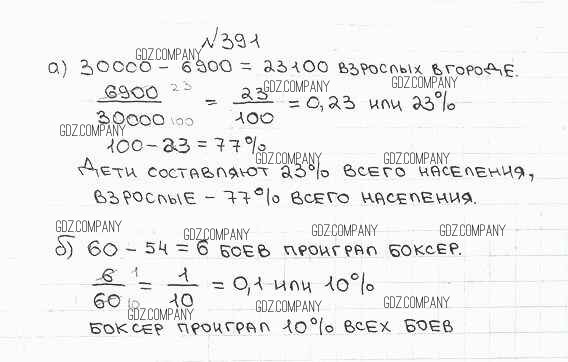 №391
GDZ.COMPANY
а) 30000 - 6900 = 23100 взрослых в городе.
GDZ.COMPANY GDZ.COMPANY
6900 23 / 30000 100 = 23/100 = 0,23 или 23%
GDZ.COMPANY
100 - 23 = 77%
GDZ.COMPANY GDZ.COMPANY
Дети составляют 23% всего населения,
взрослые - 77% всего населения.
GDZ.COMPANY GDZ.COMPANY GDZ.COMPANY GDZ.COMPANY
б) 60 - 54 = 6 боев проиграл боксер.
6 1 / 60 10 = 1/10 = 0,1 или 10%
GDZ.COMPANY GDZ.COMPANY GDZ.COMPANY
боксер проиграл 10% всех боев